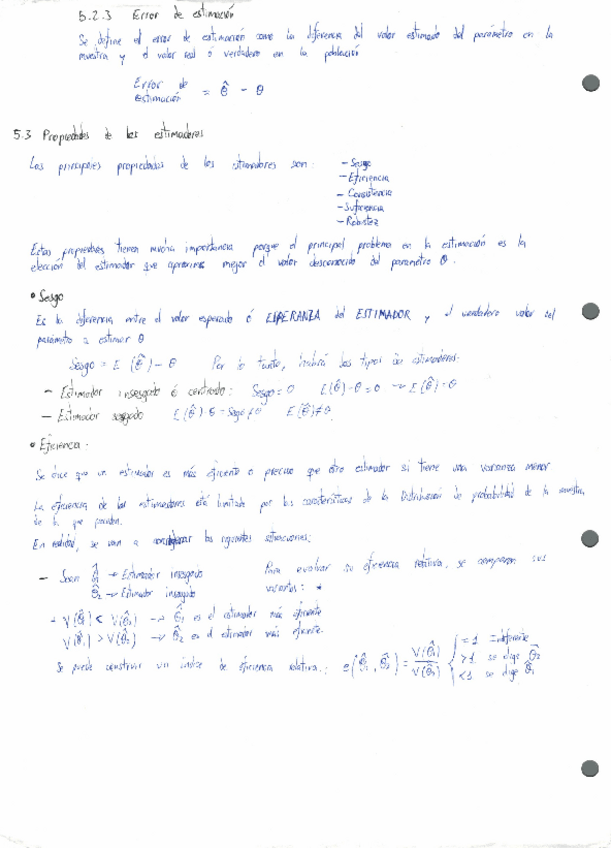 5.2.3 Error de estimación
Se define el error de estimación como la diferencia del valor estimado del parámetro en la
muestra y el valor real ó verdadero en la población
Error de
estimación = θ̂ - θ
5.3 Propiedades de los estimadores
Las principales propiedades de los estimadores son:
- Sesgo
- Eficiencia
- Consistencia
- Suficiencia
- Robustez
Estas propiedades tienen mucha importancia porque el principal problema en la estimación es la
elección del estimador que aproxima mejor el valor desconocido del parámetro θ.
• Sesgo
Es la diferencia entre el valor esperado ó ESPERANZA del ESTIMADOR y el verdadero valor del
parámetro a estimar θ
Sesgo = E (θ̂) - θ Por lo tanto, habrá dos tipos de estimadores.
- Estimador insesgado ó centrado: Sesgo = 0 E(θ̂) - θ = 0 → E(θ̂) = θ
- Estimador sesgado E(θ̂) - θ = Sesgo ≠ 0 E(θ̂) ≠ θ
• Eficiencia.
Se dice que un estimador es más eficiente o preciso que otro estimador si tiene una varianza menor
La eficiencia de los estimadores está limitada por las características de la Distribución de probabilidad de la muestra,
de la que proceden.
En realidad, se van a considerar las siguientes situaciones:
- Sean θ̂1 → Estimador insesgado
θ̂2 → Estimador insesgado
Para evaluar su eficiencia relativa, se comparan sus
- V(θ̂1) < V(θ̂2) → θ̂1 es el estimador más eficiente
V(θ̂1) > V(θ̂2) → θ̂2 es el estimador más eficiente.
Se puede construir un índice de eficiencia relativa: e(θ̂1, θ̂2) = V(θ̂1) / V(θ̂2)
= 1 indiferente
> 1 se elige θ̂2
< 1 se elige θ̂1